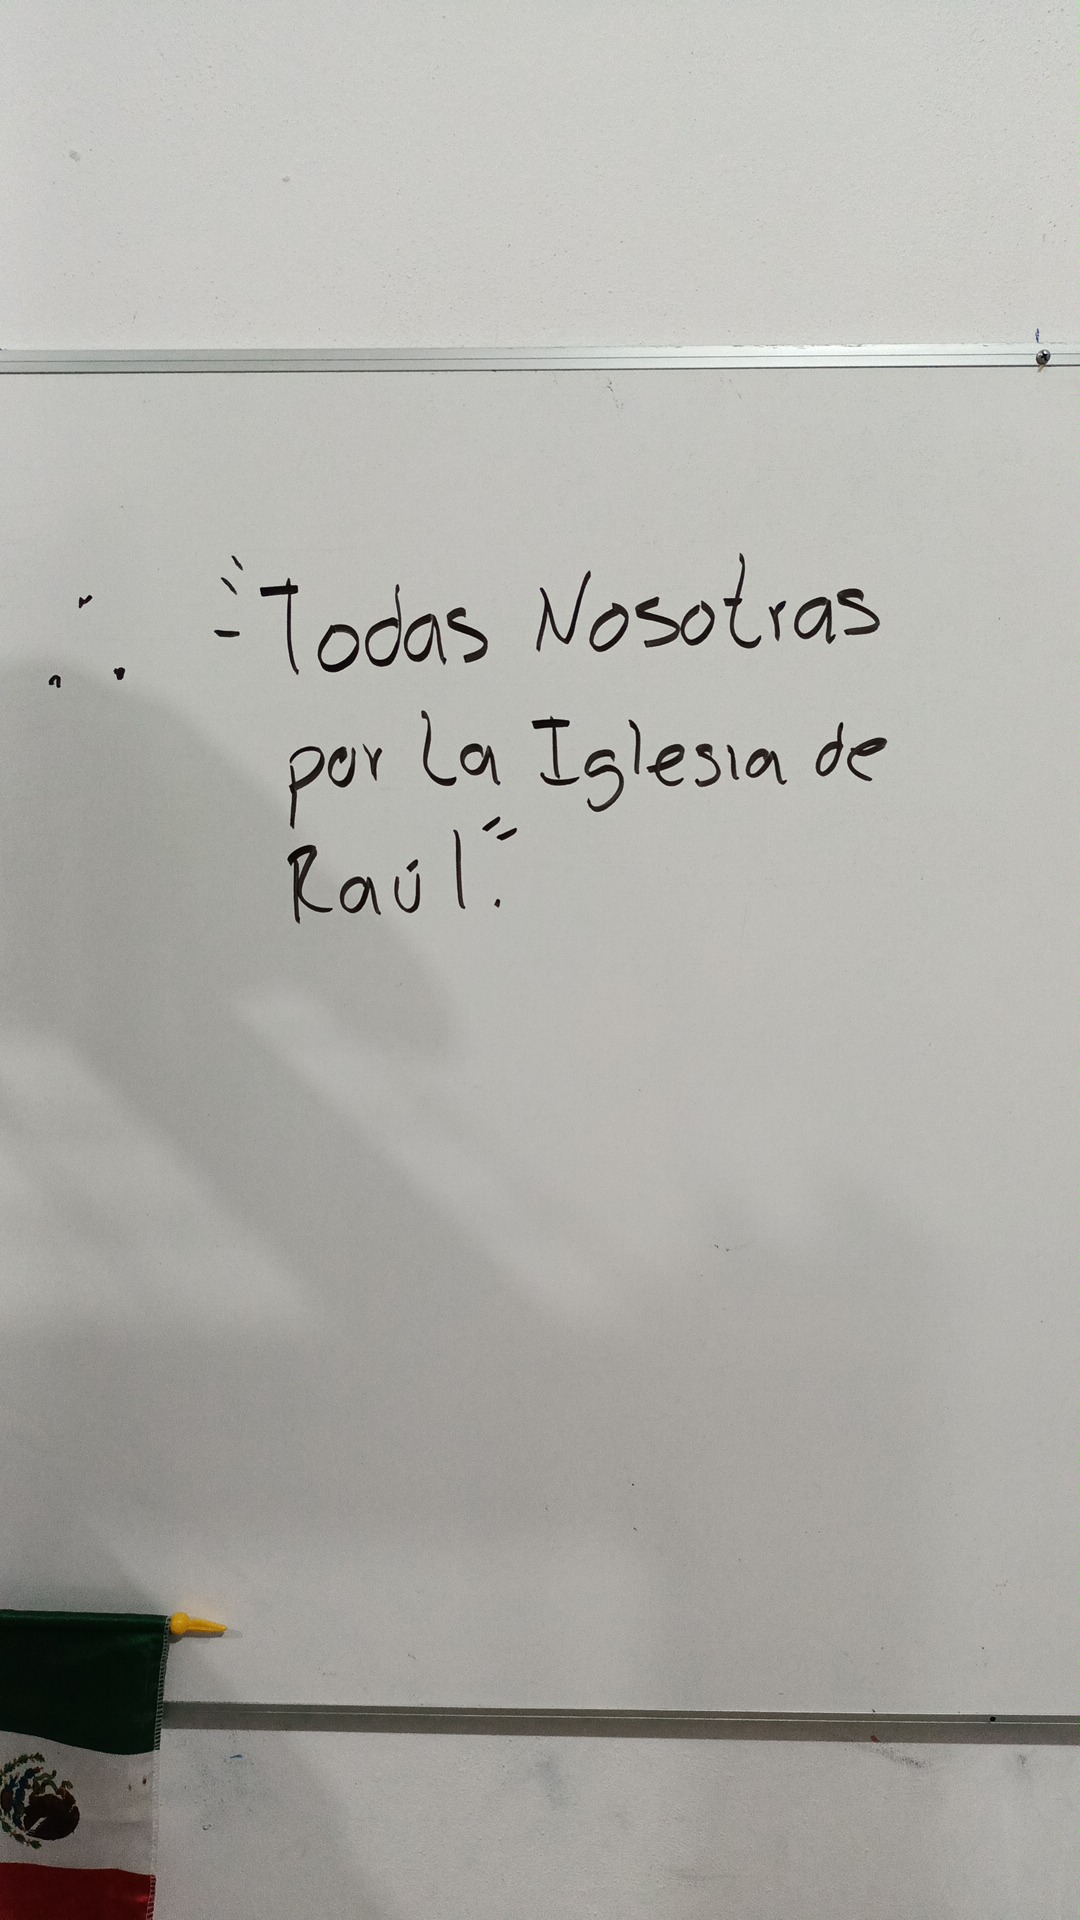 ∴ - "Todas Nosotras
por La Iglesia de
Raúl."